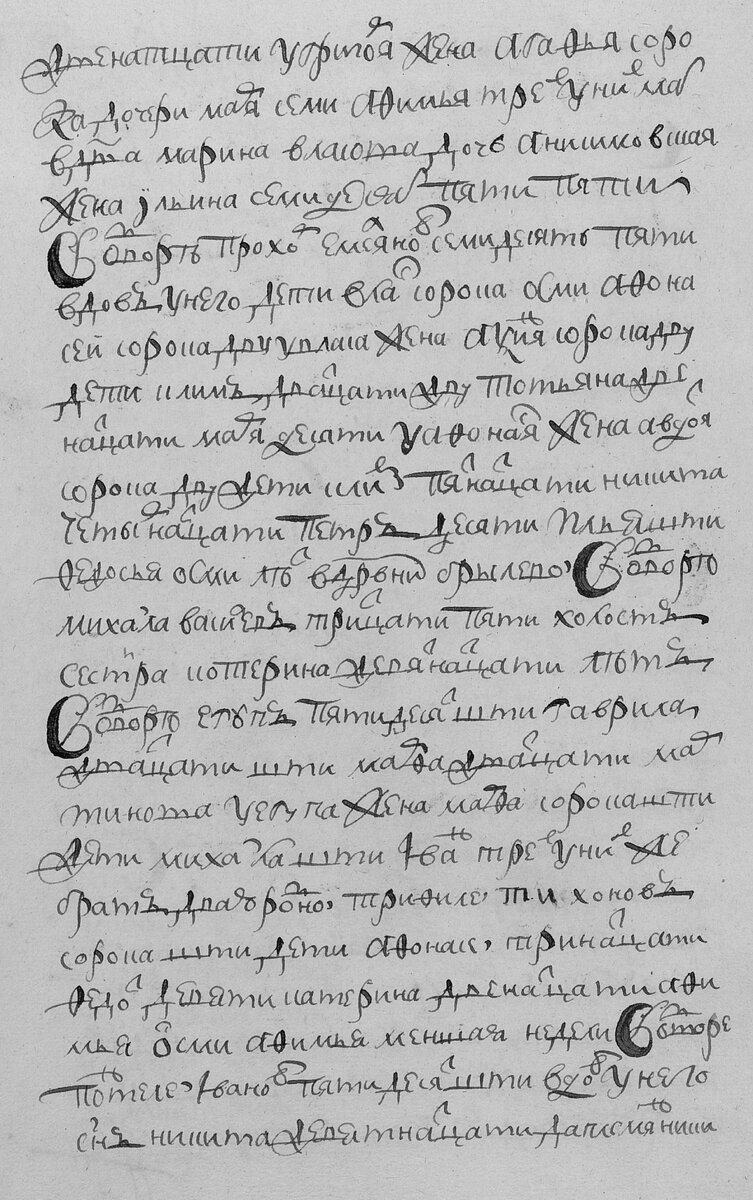 двенатцати у григоря жена агафья соро
ка дочери маря семи афимья трех у них мат
вдова марина власова дочь анишковшая
жена ульина семидесят пяти
Во дворе прохор емелянов семидесять пяти
вдовъ у него дети влас сорока осми афона
сей сорока дву у власа жена сорока дву
дети климъ дватцати дву тотьяна две
натцати маря десяти у афонася жена авдотя
сорока дву дети пятнатцати никита
четырнатцати петръ десяти илья шти
федосья осми летъ в дрвни брылево Во дворе
михаила васильевъ трицати пяти холостъ
сестра котерина девятнатцати летъ
Во дворе егупъ пятидесят шти гаврила
дватцати шти дватцати мат
у егупа жена сорока шти
дети михаила шти иван трех у них же
братъ двоюродной трифиле тихоновъ
сорока шти дети афонасе тринатцати
федор девяти катерина двенатцати афи
мья осми афимья меншая недели Во дворе
пантеле иванов пятидесят шти вдов у него
снъ никита девятнатцати да племянники